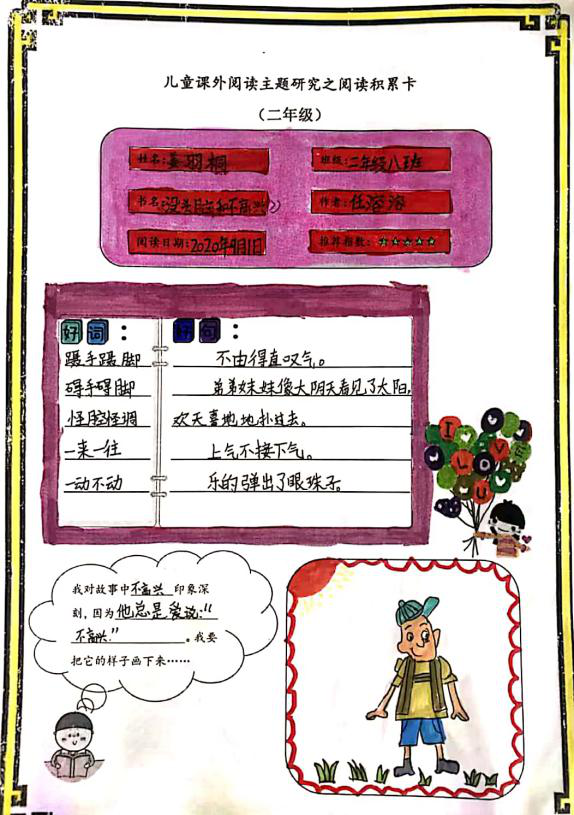 儿童课外阅读主题研究之阅读积累卡
（二年级）
姓名：姜羽桐
班级：二年级八班
书名：没头脑和不高兴
作者：任溶溶
阅读日期：2020年9月1日
推荐指数：☆☆☆☆☆
好词：
蹑手蹑脚
碍手碍脚
怪腔怪调
一来一往
一动不动
好句：
不由得直叹气。
弟弟妹妹像大阴天看见了太阳，
欢天喜地地扑过去。
上气不接下气。
乐的弹出了眼珠子。
I
LOVE
U
我对故事中不高兴印象深
刻，因为他总是爱说：“
不高兴”。我要
把它的样子画下来……